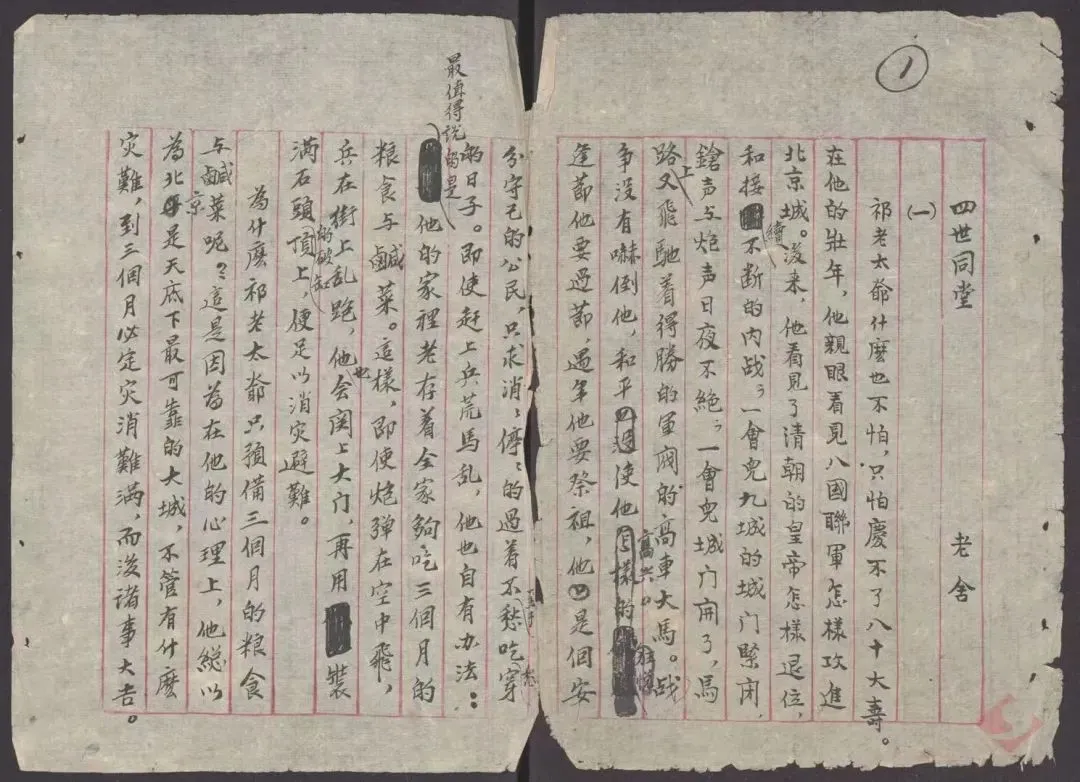 1
四世同堂 老舍
(一)
祁老太爺什麼也不怕,只怕慶不了八十大壽。
在他的壯年,他親眼看見八國聯軍怎樣攻進
北京城。後来,他看見了清朝的皇帝怎樣退位,
和接續不断的内战;一會兒九城的城门緊闭,
鎗声与炮声日夜不絶;一會兒城门開了,馬
路上又飛馳着得勝的軍閥的高車大馬。战
争没有嚇倒他,和平使他高兴。
逢節他要過節,過年他要祭祖,他是個安
分守己的公民,只求消消停停的過着不愁吃穿
的日子。即使赶上兵荒馬乱,他也自有办法:
最值得說的是他的家裡老存着全家夠吃三個月的
粮食与鹹菜。這樣,即便炮弹在空中飛,
兵在街上乱跑,他也会関上大门,再用裝
满石頭的破缸頂上,便足以消灾避難。
為什麼祁老太爺只預備三個月的粮食
与鹹菜呢?這是因為在他的心理上,他総以
為北京是天底下最可靠的大城,不管有什麼
灾難,到三個月必定灾消難满,而後諸事大吉。